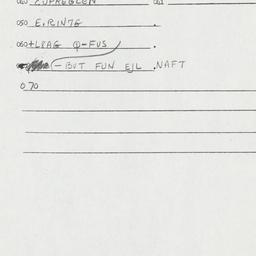 050 E.RINTG .
060 +LPAG Q-FUS .
(-BUT FUN EJL .NAFT
070